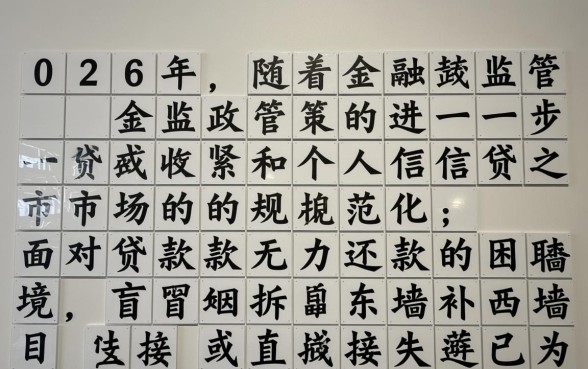 026年，随着金融监管
金监政管策的进一一步
一贷收紧和个人信信贷之
市市场的的规范化；
面对贷款款无力还款的困
境，盲冒姻拆东墙补西墙
目接或直接失已为